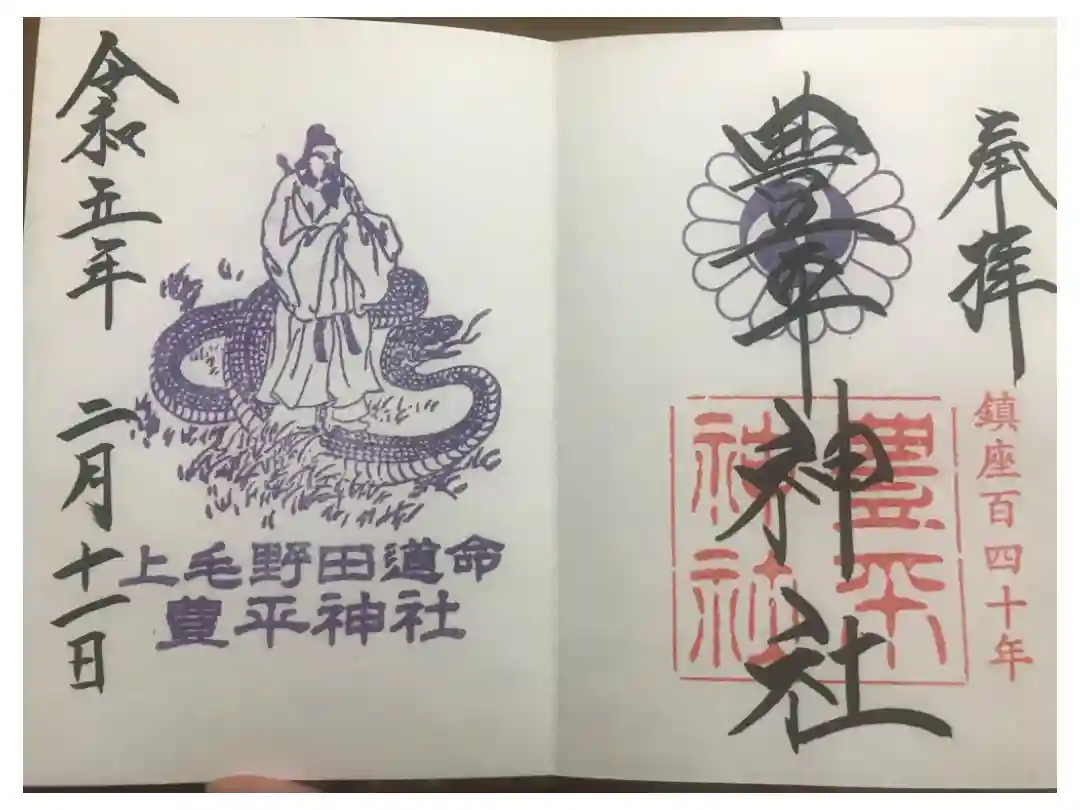 奉拝
鎮座百四十年
豊平神社
豊平
神社
令和五年 二月十一日
上毛野田道命
豊平神社